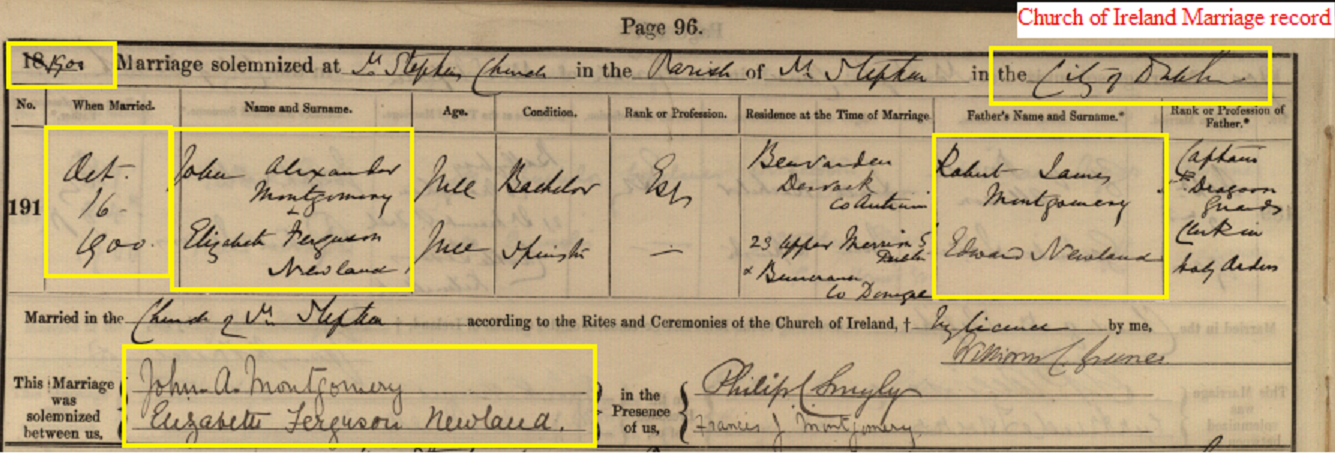 Page 96.
Church of Ireland Marriage record
18 1900 Marriage solemnized at St Stephens Church in the Parish of St Stephen in the City of Dublin
No. When Married. Name and Surname. Age. Condition. Rank or Profession. Residence at the Time of Marriage Father's Name and Surname.* Rank or Profession of Father.*
191
Oct.
16
1900
John Alexander
Montgomery
Full
Bachelor
Esq
Benvarden
Dervock
Co Antrim
Robert James
Montgomery
Captain
Dragoon
Guards
Elizabeth Ferguson
Newland
Full
Spinster
—
23 Upper Merrion S
Dublin
Co Donegal
Edward Newland
Clerk in
holy Orders
Married in the Church of St Stephen according to the Rites and Ceremonies of the Church of Ireland, † by licence by me,
This Marriage was solemnized between us,
John A. Montgomery
Elizabeth Ferguson Newland.
in the Presence of us,
Philip C Smyly
Frances J Montgomery